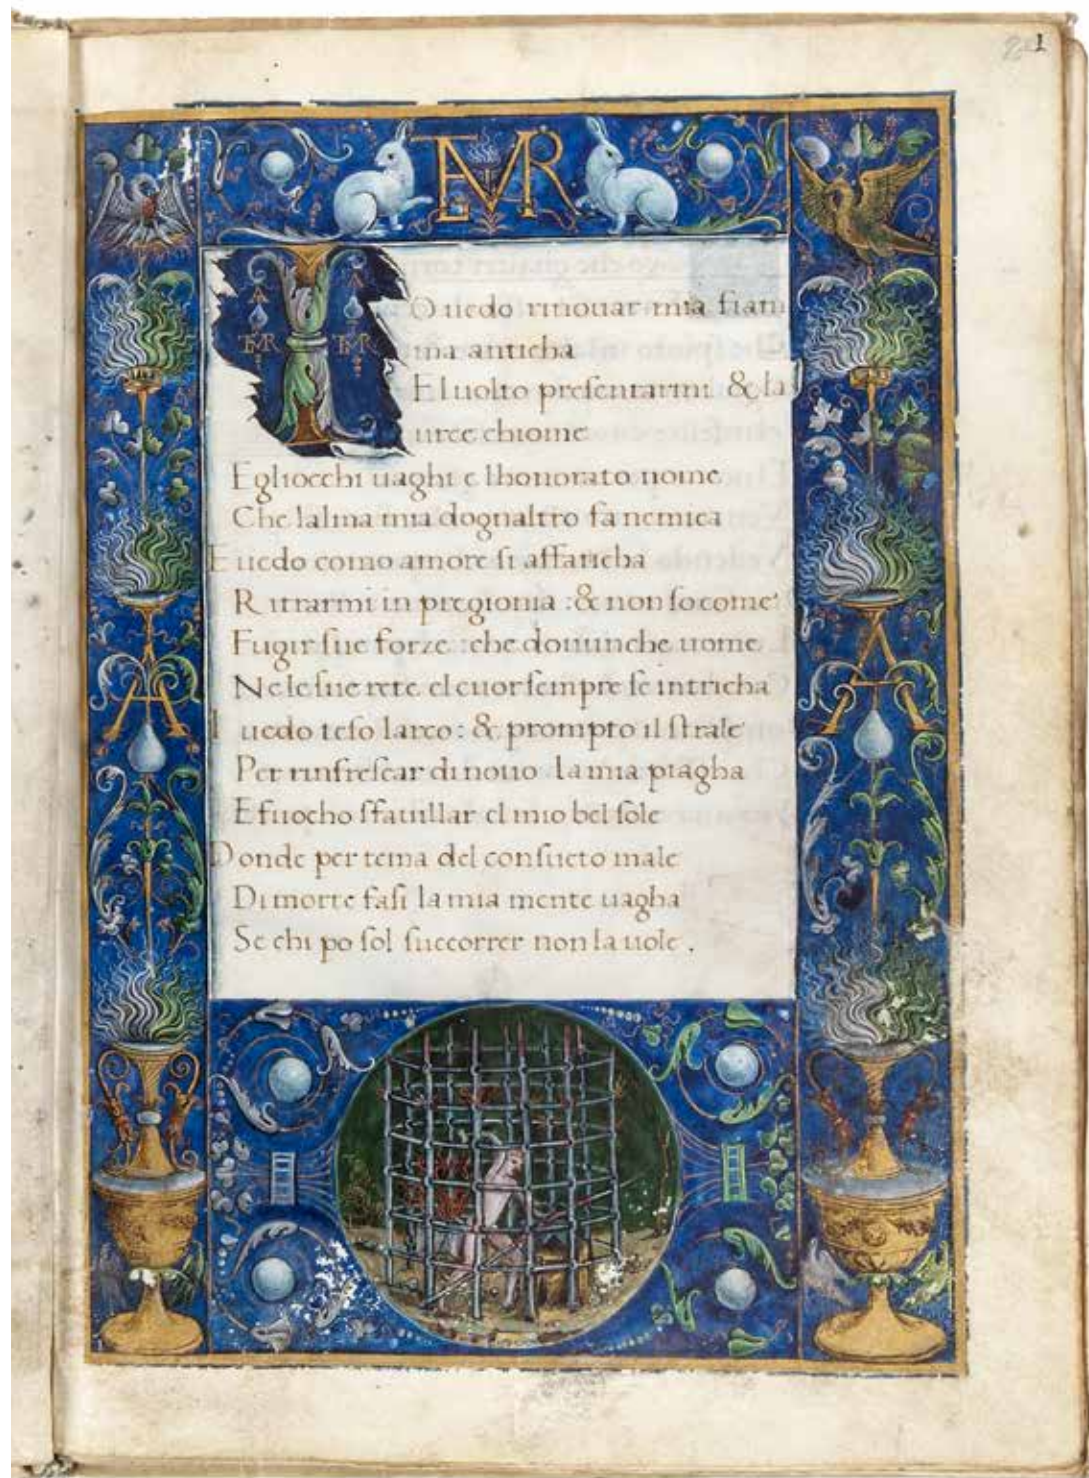 1
EMR
I O uedo rinouar mia fiam
EMR EMR
ma anticha
El uolto presentarmi & la
uree chiome
Egliocchi uaghi e lhonorato nome
Che lalma mia dognaltro fa nemica
E uedo como amore si affaticha
Ritrarmi in pregionia : & non so come
Fugir sue forze : che douunche uome
Ne le sue rete el cuor sempre se intricha
I uedo teso larco : & prompto il strale
Per rinfrescar di nouo la mia piagha
E fuocho sfauillar el mio bel sole
Donde per tema del consueto male
Di morte fasi la mia mente uagha
Se chi po sol succorrer non la uole .
A A